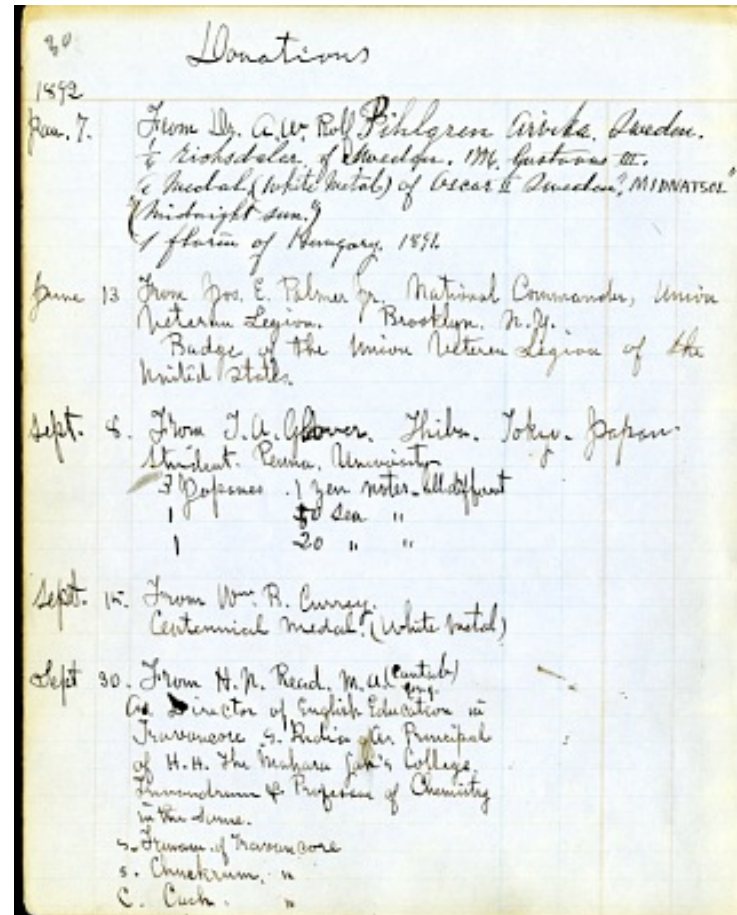 30
Donations
1892
Jan. 7. From Dr. A. W. Rolf Pihlgren Arvika. Sweden.
riksdaler of Sweden. Gustavus III.
a Medal (White Metal) of Oscar II Sweden, "MIDNATSOL"
"(Midnight sun.")
1 florin of Hungary. 1892.
June 13 From Jos. E. Palmer Jr. National Commander, Union
Veteran Legion. Brooklyn. N.Y.
Badge of the Union Veteran Legion of the
United States.
Sept. 8. From T. A. Glover. Shiba. Tokyo. Japan.
Student. Penna. University
3 Japanes 1 yen notes all different
1 50 sen "
1 20 " "
Sept. 15. From Wm. R. Curray.
Centennial Medal. (White Metal)
Sept 30. From H. N. Read. M.A. (Cantab)
Director of English Education in
Travancore S. India Principal
of H. H. The Mahara Jah's College
& Professor of Chemistry
in the same.
S. of Travancore
S. Chuckrum. "
C. Cash. "